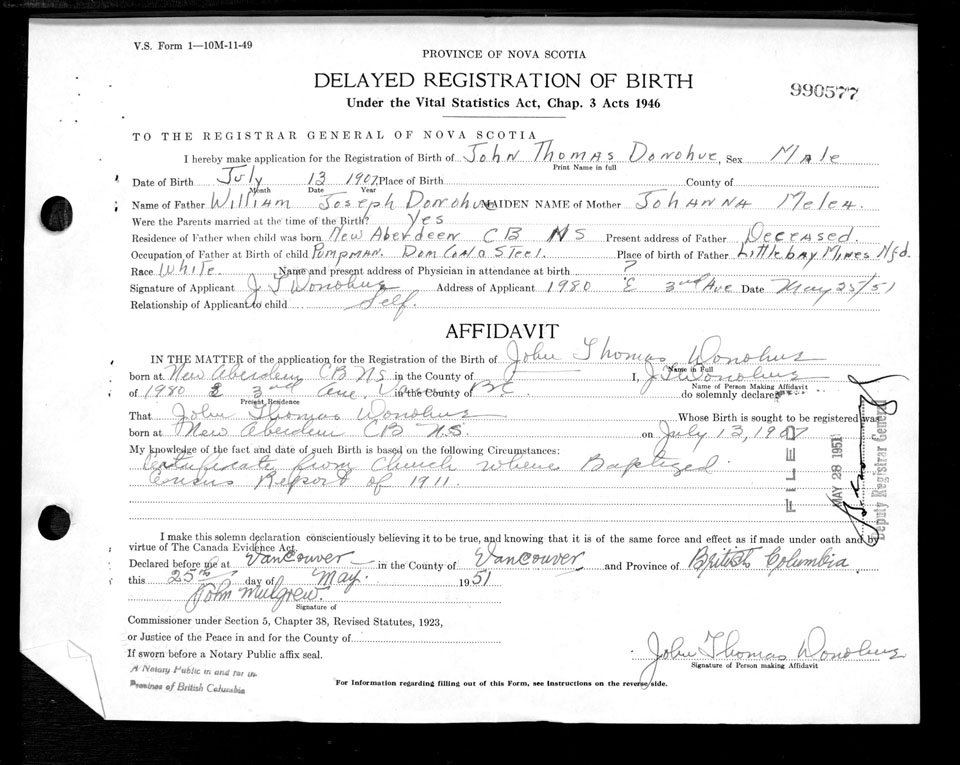 V.S. Form 1—10M-11-49
PROVINCE OF NOVA SCOTIA
DELAYED REGISTRATION OF BIRTH
990577
Under the Vital Statistics Act, Chap. 3 Acts 1946
TO THE REGISTRAR GENERAL OF NOVA SCOTIA
I hereby make application for the Registration of Birth of John Thomas Donohue, Sex Male
Print Name in full
Date of Birth July 13 1907 Place of Birth County of
Month Date Year
Name of Father William Joseph Donohue MAIDEN NAME of Mother Johanna Melea.
Were the Parents married at the time of the Birth? Yes
Residence of Father when child was born New Aberdeen CB NS Present address of Father Deceased.
Occupation of Father at Birth of child Pumpman. Dom Coal & Steel. Place of birth of Father Little bay Mines Nfd.
Race White Name and present address of Physician in attendance at birth ?
Signature of Applicant J T Donohue Address of Applicant 1980 E 3rd Ave Date May 25/51
Relationship of Applicant to child Self.
AFFIDAVIT
IN THE MATTER of the application for the Registration of the Birth of John Thomas Donohue
Name in Full
born at New Aberdeen CB NS in the County of I, J T Donohue
Name of Person Making Affidavit
of 1980 E 3rd Ave Vancouver in the County of BC do solemnly declare:
Present Residence
That John Thomas Donohue Whose Birth is sought to be registered was
born at New Aberdeen CB N.S. on July 13, 1907
My knowledge of the fact and date of such Birth is based on the following Circumstances:
Certificate from Church where Baptized
Census Report of 1911.
FILED
MAY 28 1951
Deputy Registrar General
I make this solemn declaration conscientiously believing it to be true, and knowing that it is of the same force and effect as if made under oath and by
virtue of The Canada Evidence Act.
Declared before me at Vancouver in the County of Vancouver and Province of British Columbia
this 25th day of May. 1951
John Mulgrew.
Signature of
Commissioner under Section 5, Chapter 38, Revised Statutes, 1923,
or Justice of the Peace in and for the County of
If sworn before a Notary Public affix seal.
A Notary Public in and for the
Province of British Columbia
John Thomas Donohue
Signature of Person making Affidavit
For Information regarding filling out of this Form, see Instructions on the reverse side.